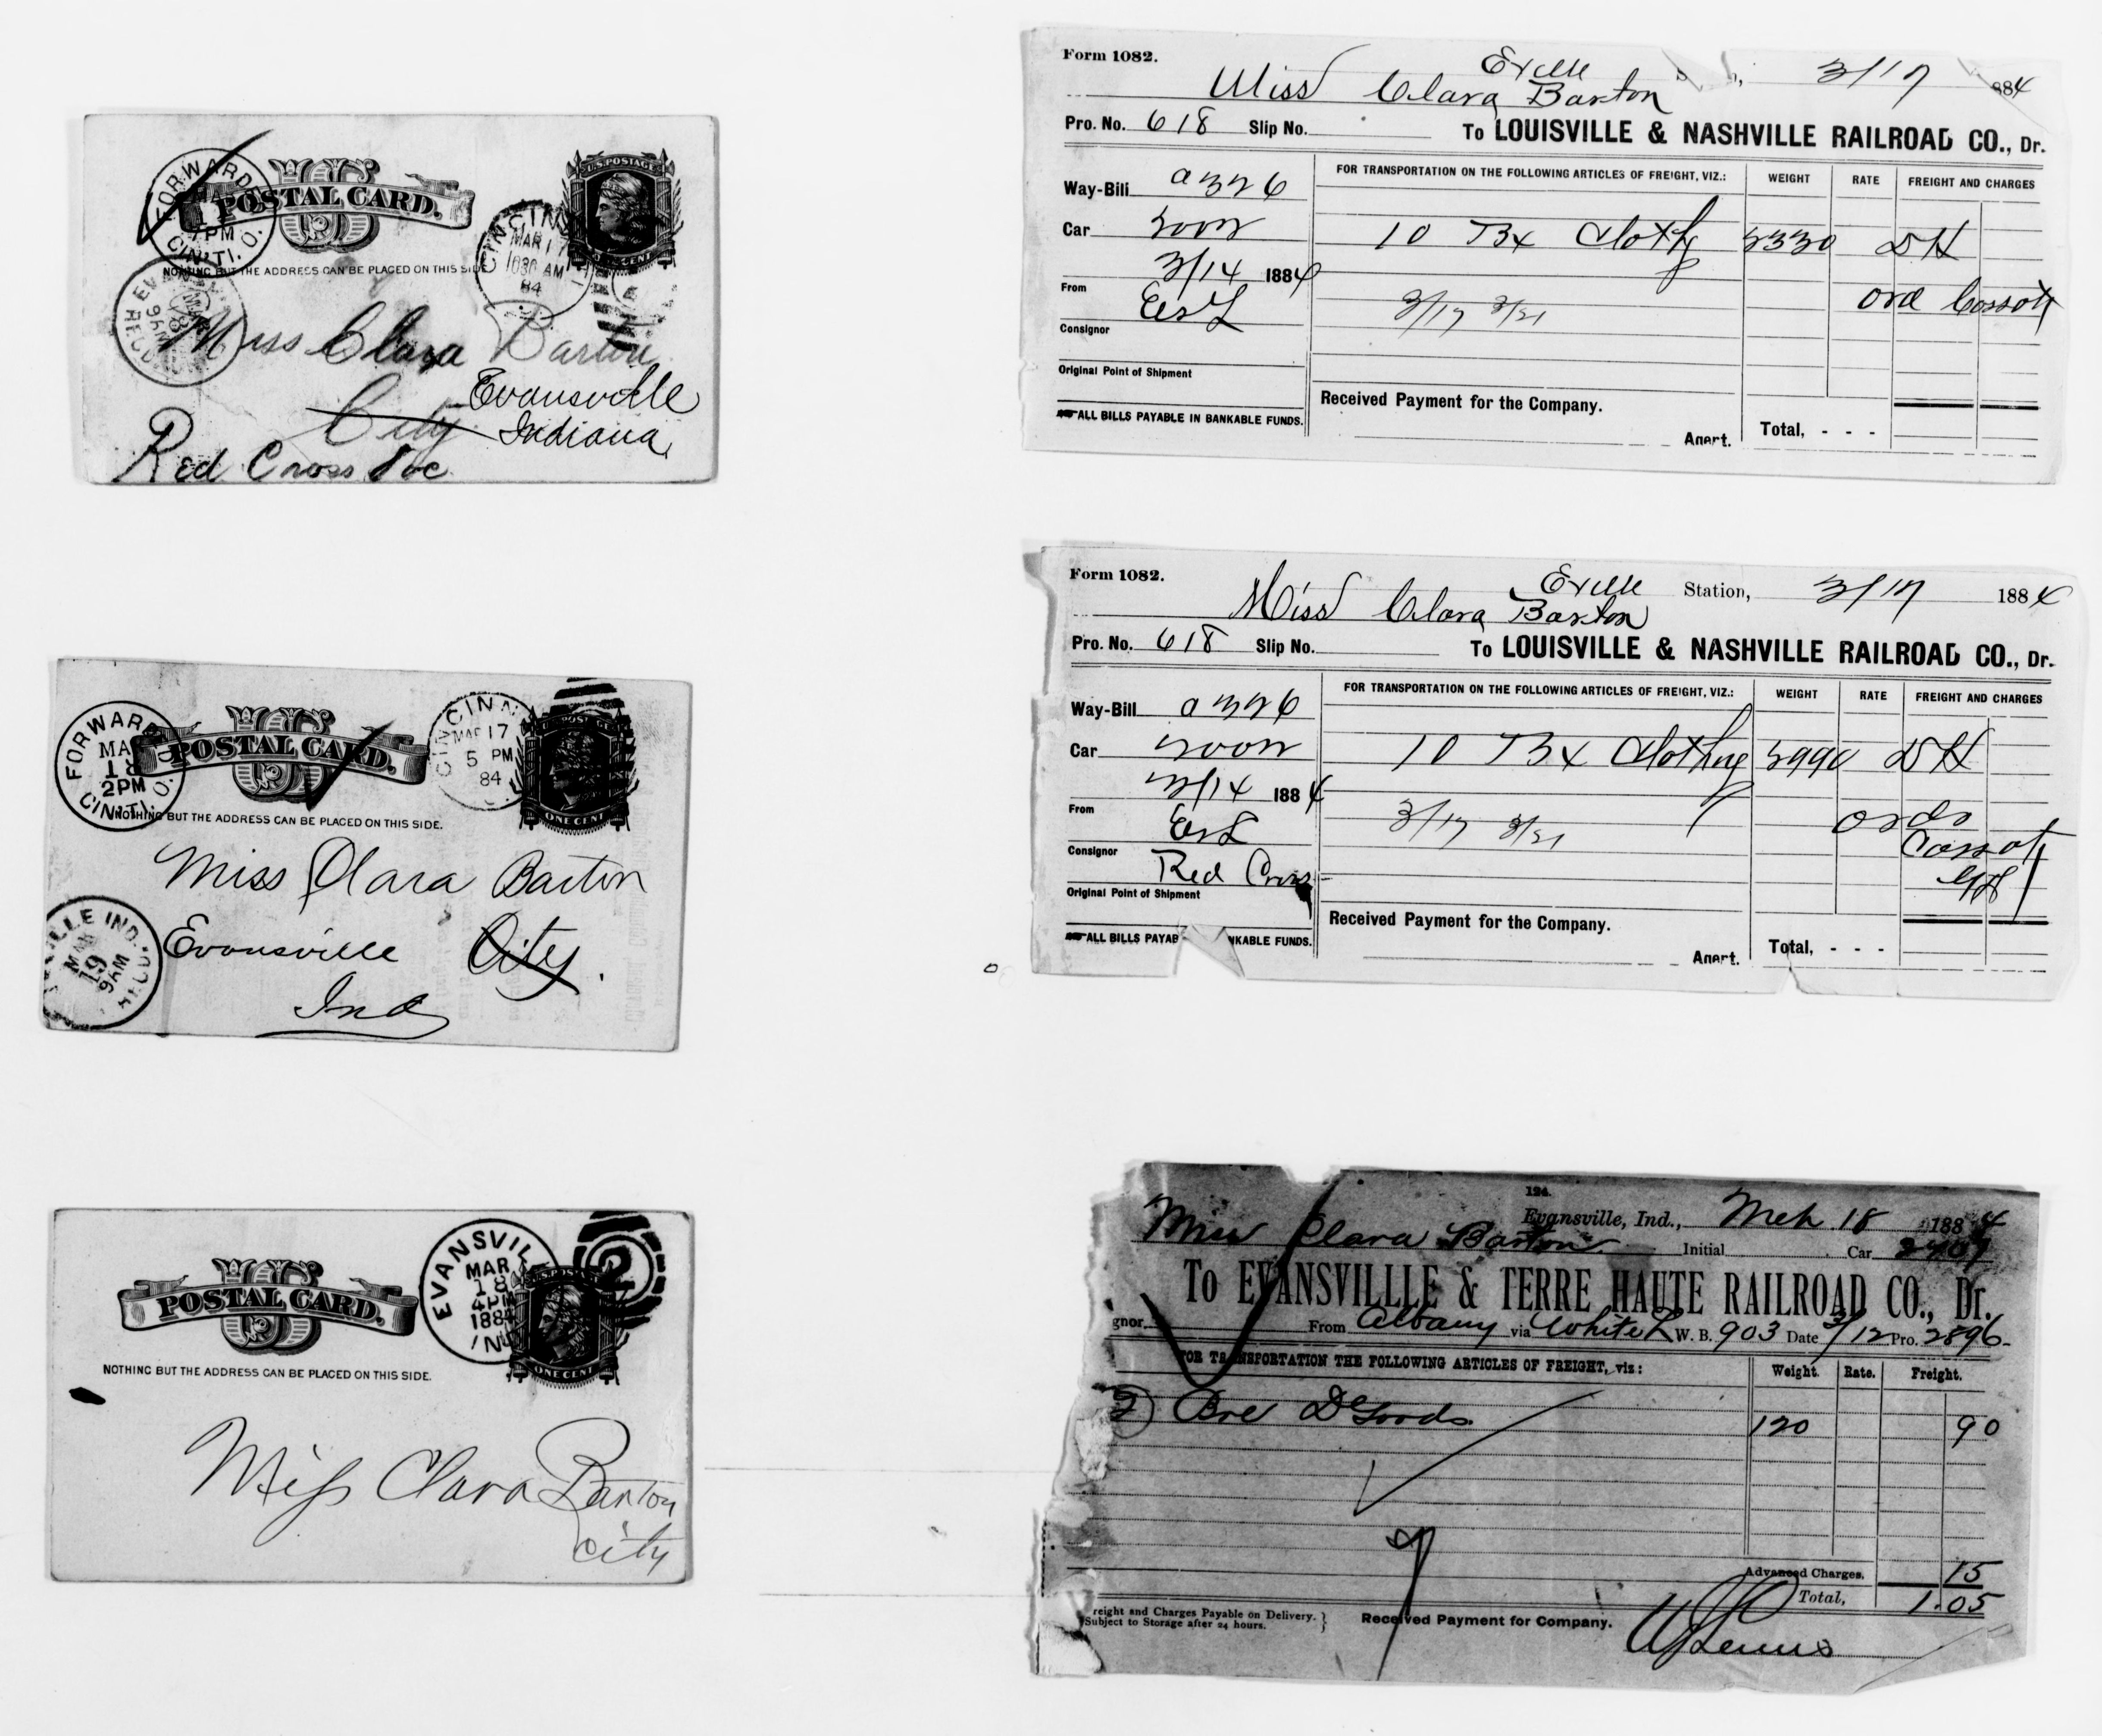 FORWARDED
7 PM
CIN'TI. O.
U S
POSTAL CARD.
NOTHING BUT THE ADDRESS CAN BE PLACED ON THIS SIDE
U.S. POSTAGE
ONE CENT
CINCIN
MAR 17
1030 AM
84
Miss Clara Barton
City
Evansville
Indiana
Red Cross Soc
FORWARDED
MA
18
2PM
CIN'TI. O.
U S
POSTAL CARD.
NOTHING BUT THE ADDRESS CAN BE PLACED ON THIS SIDE.
CINCINN
MAR 17
5 PM
84
ONE CENT
Miss Clara Barton
Evansville City.
Ind
VILLE IND.
MAR
19
9AM
REC'D
U S
POSTAL CARD.
NOTHING BUT THE ADDRESS CAN BE PLACED ON THIS SIDE.
EVANSVIL
MAR
18
4PM
1884
IND
2
ONE CENT
Miss Clara Barton
City
Form 1082.
Eville 3/17 884
Miss Clara Barton
Pro. No. 618 Slip No. To LOUISVILLE & NASHVILLE RAILROAD CO., Dr.
FOR TRANSPORTATION ON THE FOLLOWING ARTICLES OF FREIGHT, VIZ.: WEIGHT RATE FREIGHT AND CHARGES
Way-Bill a 326
Car
10 Bx Cloth 3330 DH
3/14 1884
From EStL
3/17 3/21
Consignor
Original Point of Shipment
ALL BILLS PAYABLE IN BANKABLE FUNDS.
Received Payment for the Company.
Agent.
Total, - - -
Form 1082.
Eville Station, 3/17 1884
Miss Clara Barton
Pro. No. 618 Slip No. To LOUISVILLE & NASHVILLE RAILROAD CO., Dr.
FOR TRANSPORTATION ON THE FOLLOWING ARTICLES OF FREIGHT, VIZ.: WEIGHT RATE FREIGHT AND CHARGES
Way-Bill a 326
Car
10 Bx Clothing 3990 DH
3/14 1884
From EStL
3/17 3/21
Consignor Red Cross
Original Point of Shipment
ALL BILLS PAYAB NKABLE FUNDS.
Received Payment for the Company.
Agent.
Total, - - -
124.
Evansville, Ind., Mch 18 1884
Miss Clara Barton Initial Car 2407
To EVANSVILLLE & TERRE HAUTE RAILROAD CO., Dr.
gnor. From Albany via White L W. B. 903 Date 3/12 Pro. 2896
FOR TRANSPORTATION THE FOLLOWING ARTICLES OF FREIGHT, viz: Weight. Rate. Freight.
2 Bxe D Goods 120 90
Advanced Charges. 15
Total, 1.05
reight and Charges Payable on Delivery.
Subject to Storage after 24 hours.
Received Payment for Company.